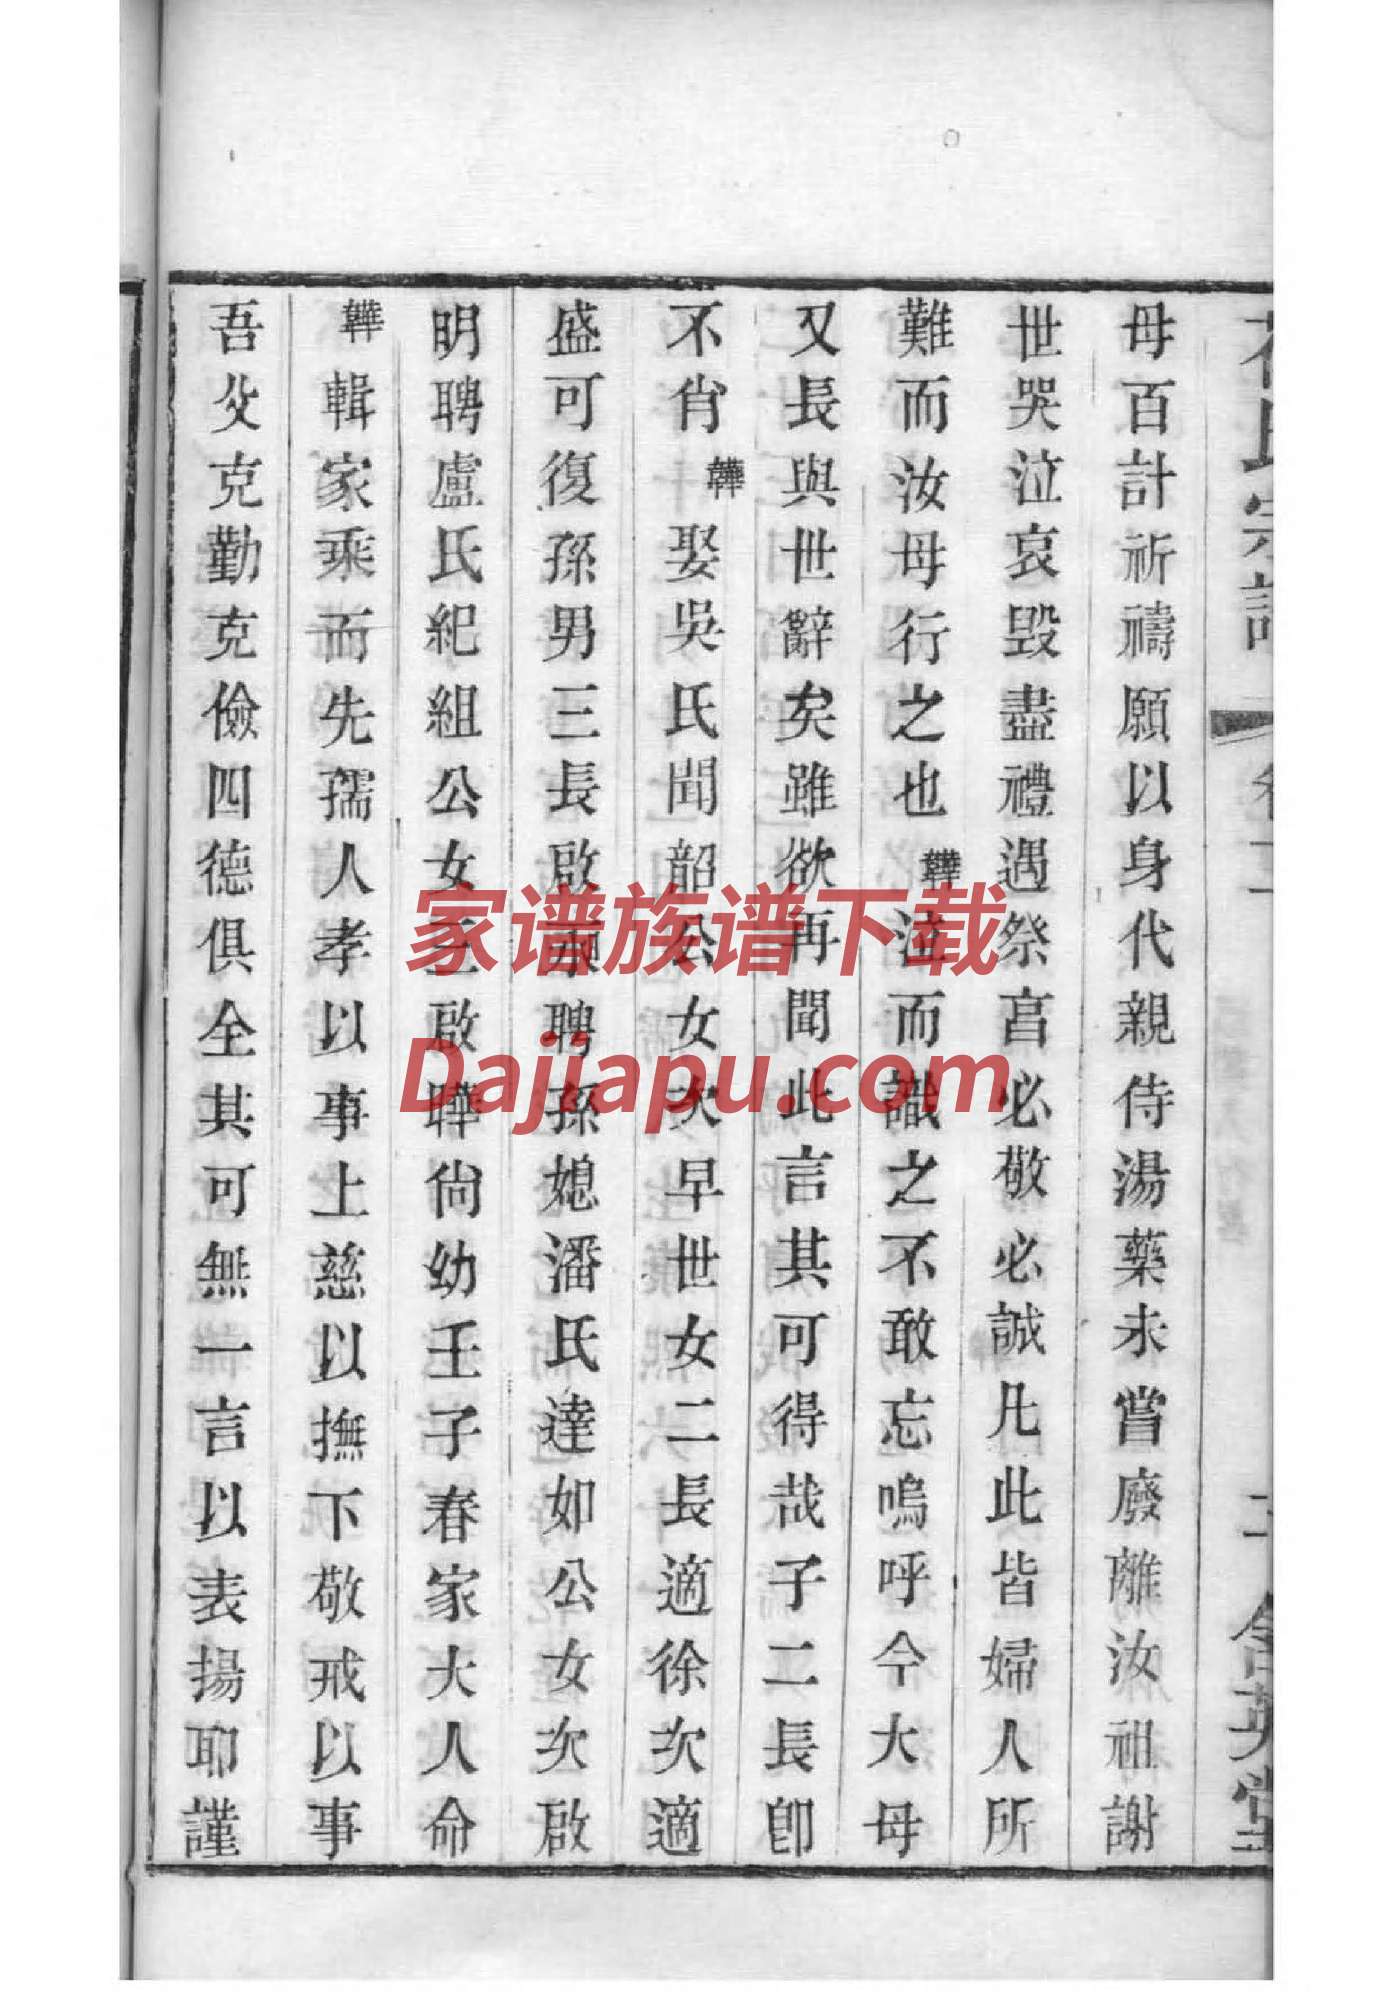 母百計祈禱願以身代親侍湯藥未嘗廢離汝祖謝
世哭泣哀毀盡禮遇祭亯必敬必誠凡此皆婦人所
難而汝母行之也韡泣而識之不敢忘嗚呼今大母
又長與世辭矣雖欲再聞此言其可得哉子二長卽
不肖韡娶吳氏聞韶公女次早世女二長適徐次適
盛可復孫男三長啟 聘孫媳潘氏達如公女次啟
明聘盧氏紀組公女三啟曄尙幼壬子春家大人命
韡輯家乘而先孺人孝以事上慈以撫下敬戒以事
吾父克勤克儉四德俱全其可無一言以表揚耶謹
家谱族谱下载
Dajiapu.com